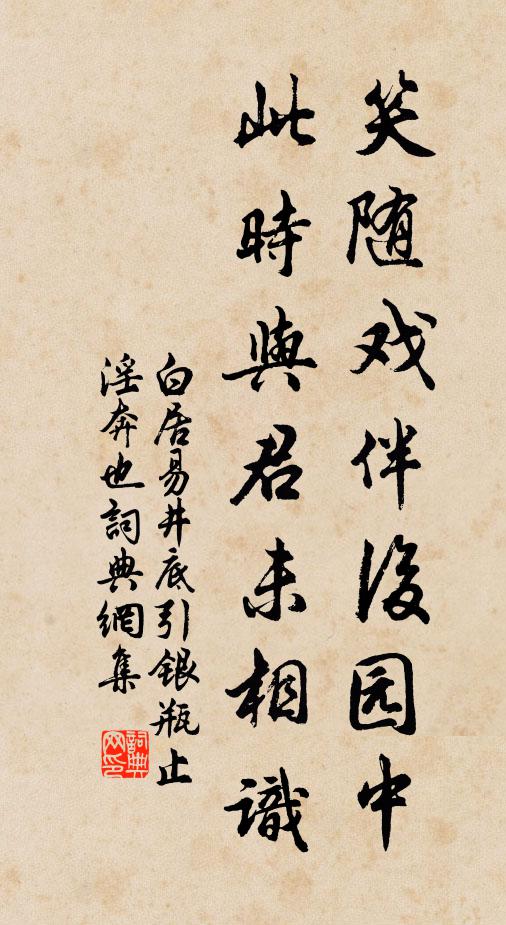 笑随戏伴後园中
此時與君未相識
白居易井底引銀瓶止
淫奔也詞典網集
詞典網印